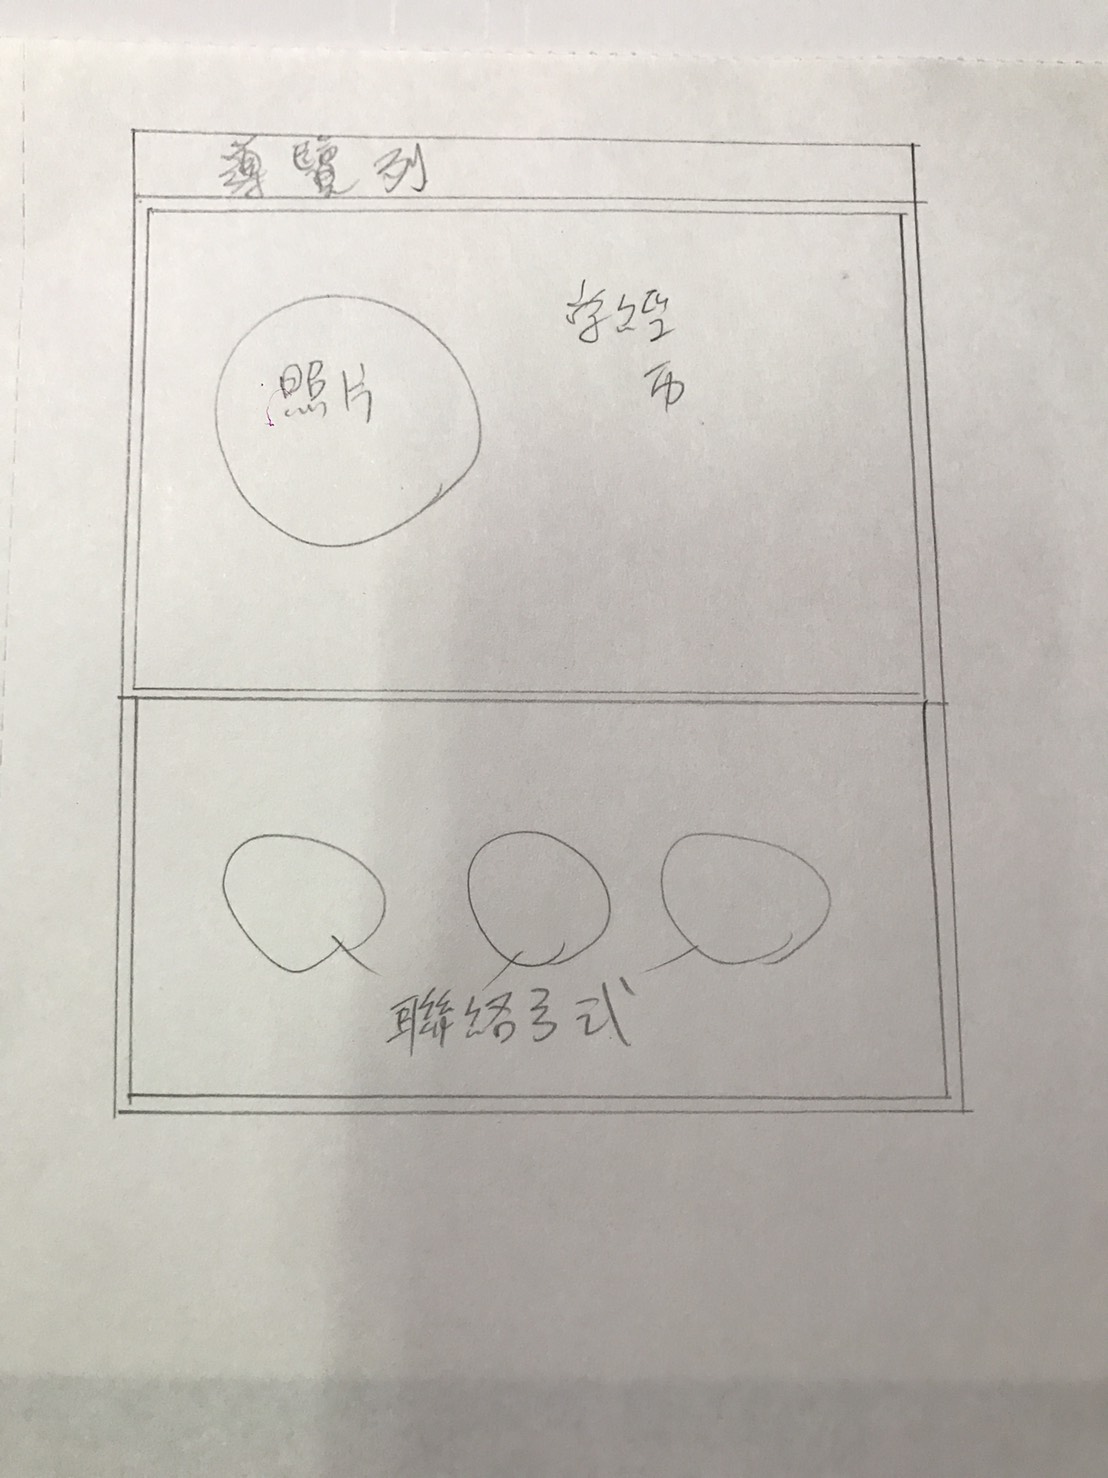 導覽列
照片
学經
歷
聯絡方式